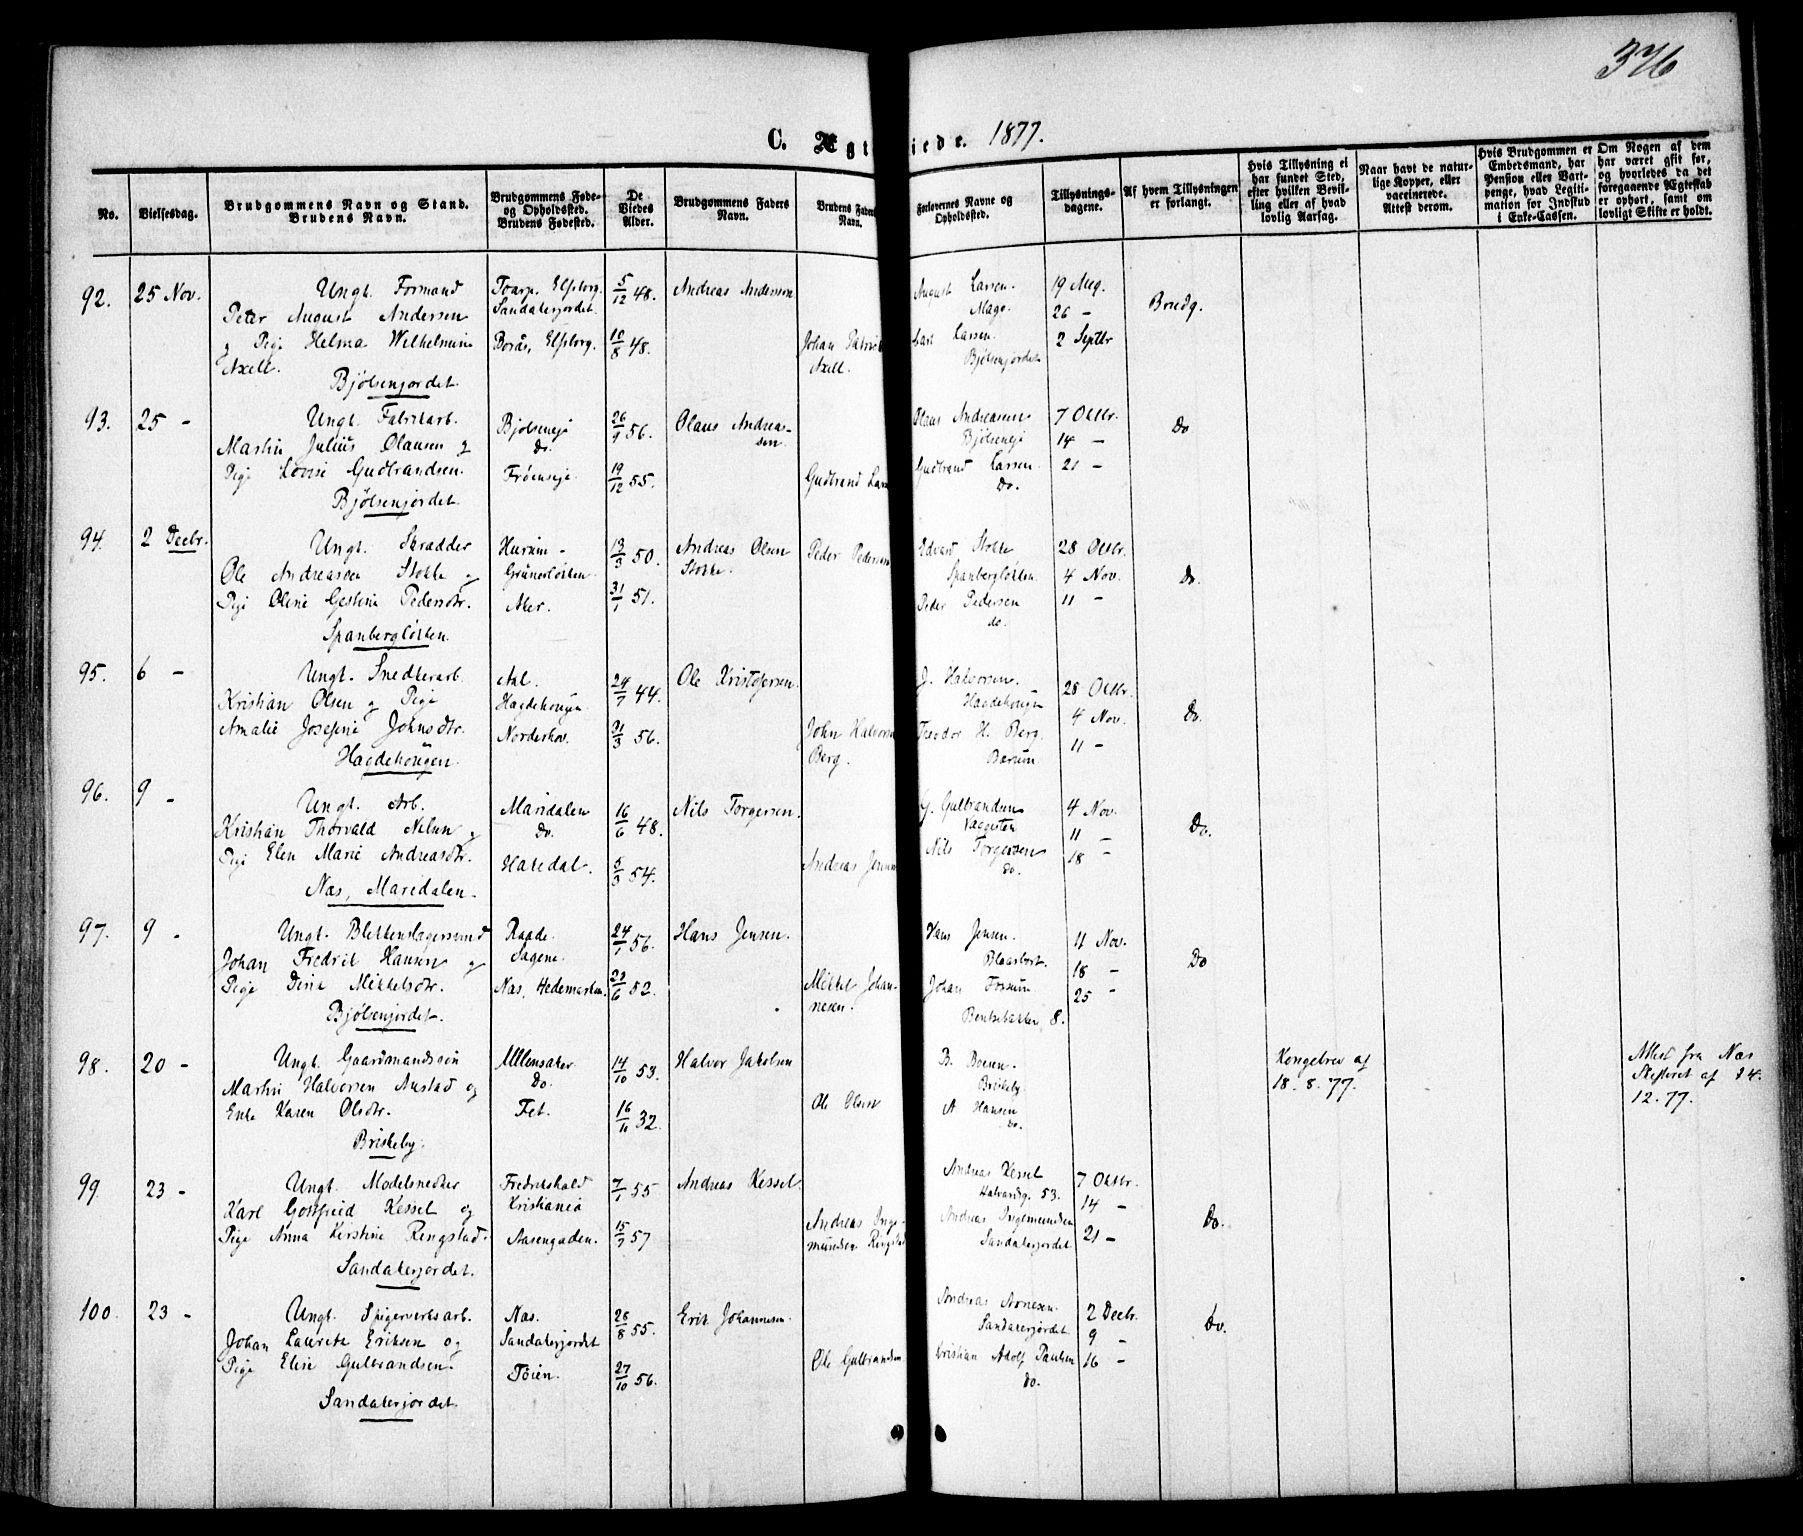 376
C. Ægt iede. 1877.
No.
Vielsesdag.
Brudgommens Navn og Stand.
Brudens Navn.
Brudgommens Føde-
og Opholdssted.
Brudens Fødested.
De
Viedes
Alder.
Brudgommens Faders
Navn.
Brudens Faders
Navn.
Forlovernes Navne og
Opholdssted.
Tillysnings-
dagene.
Af hvem Tillysningen
er forlangt.
Hvis Tillysning ei
har fundet Sted,
efter hvilken Bevil-
ling eller af hvad
lovlig Aarsag.
Naar havt de natur-
lige Kopper, eller
vaccinerede.
Attest derom.
Hvis Brudgommen er
Embedsmand, har
Pension eller Vart-
penge, hvad Legiti-
mation for Indskud
i Enke-Cassen.
Om Nogen af dem
har været gift før,
og hvorledes da det
foregaaende Ægteskab
er ophørt, samt om
lovligt Skifte er holdt.
92. 25 Nov.
Ungk. Formand
Peter August Andersen
og Pige Helma Wilhelmine
Axell.
Bjølsenjordet.
Toarp. Elfsborg.
Sandakerjordet.
Borås, Elfsborg.
5/12 48.
10/8 48.
Andreas Andersson
Johan Patrick
Axell.
August Larsen.
Mago.
Carl Larsen.
Bjølsenjordet
19 Aug.
26 -
2 Septbr
Brudg.
93. 25 -
Ungk. Fabrikarb.
Martin Julius Olausen og
Pige Lovise Gudbrandsen.
Bjølsenjordet.
Bjølseneje
Do.
Frøenseje.
26/9 56.
19/12 55.
Olaus Andrea-
sen.
Gudbrand Lars
Olaus Andreasen
Bjølseneje
Gudbrand Larsen.
Do.
7 Oktbr.
14 -
21 -
Do
94. 2 Decbr.
Ungk. Skrædder
Ole Andreassen Stokke og
Pige Oline Gestine Pedersdtr.
Spanbergløkken.
Hurum -
Grünerløkken.
Aker.
13/3 50.
31/1 51.
Andreas Olsen
Stokke.
Peder Pedersen
Edvard Stokke
Spanbergløkken.
Peder Pedersen
do.
28 Oktbr.
4 Nov.
11 -
Do.
95. 6 -
Ungk. Snedkerarb.
Kristian Olsen og Pige
Amalie Josefine Johnsdtr.
Hagdehougen.
Aal.
Hagdehougen.
Norderhov.
24/7 44.
31/3 56.
Ole Kristofersen.
John Halvorse
Berg.
J. Halvorsen.
Hagdehougen
Theodor H. Berg.
Bærum.
28 Oktbr.
4 Nov.
11 -
Do.
96. 9 -
Ungk. Arb.
Kristian Thorvald Nilsen og
Pige Elen Marie Andreasdtr.
Næs, Maridalen.
Maridalen
Do.
Hakedal.
16/6 48.
5/3 54.
Nils Torgersen.
Andreas Jensen
G. Gulbrandsen
Vaggesten
Nils Torgersen
do.
4 Nov.
11 -
18 -
Do.
97. 9 -
Ungk. Blikkenslagersvend
Johan Fredrik Hansen og
Pige Dina Mikkelsdtr.
Bjølsenjordet.
Raade.
Sagene.
Næs, Hedemarken.
24/1 56.
22/6 52.
Hans Jensen.
Mikkel Johan-
nesen.
Hans Jensen.
Blaasbort.
Johan Fossum
Bentsebakken, 8.
11 Nov.
18 -
25 -
Do
98. 20 -
Ungk. Gaardmandssøn
Martin Halvorsen Austad og
Enke Karen Olsdtr.
Briskeby.
Ullensaker.
Do.
Fet.
14/10 53.
16/11 32.
Halvor Jakobsen
Ole Olsen
B. Doenen.
Briskeby.
A Hansen
do.
Kongebrev af
18. 8. 77.
Attest fra Næs
Skifteret af 24.
12. 77.
99. 23 -
Ungk. Modelsnedker
Karl Gottfried Kessel og
Pige Anna Kirstine Ringstad.
Sandakerjordet.
Fredrikshald
Kristiania
Aasengaden.
7/1 55
15/7 57
Andreas Kessel.
Andreas Inge-
mundsen Ringstad
Andreas Kessel
Halvardsg. 53.
Andreas Ingemundsen
Sandakerjordet.
7 Oktbr.
14 -
21 -
Do.
100. 23 -
Ungk. Spigerverksarb.
Johan Lauritz Eriksen og
Pige Elise Gulbrandsen.
Sandakerjordet.
Næs.
Sandakerjordet
Tøien.
28/8 55.
27/10 56.
Erik Johannesen.
Ole Gulbrandsen
Andreas Arnesen.
Sandakerjordet.
Kristian Adolf Paulsen
do.
2 Decbr.
9 -
16 -
Do.